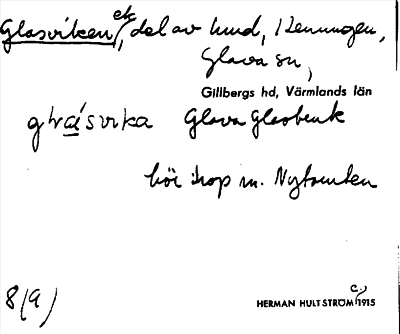 Glasviken, ek, del av hmd, i lemungen,
Glava sn,
Gillbergs hd, Värmlands län
glrásvika Glava Glasbruk
hör ihop m. Nytomten
8(9)
HERMAN HULTSTRÖM c. 1915